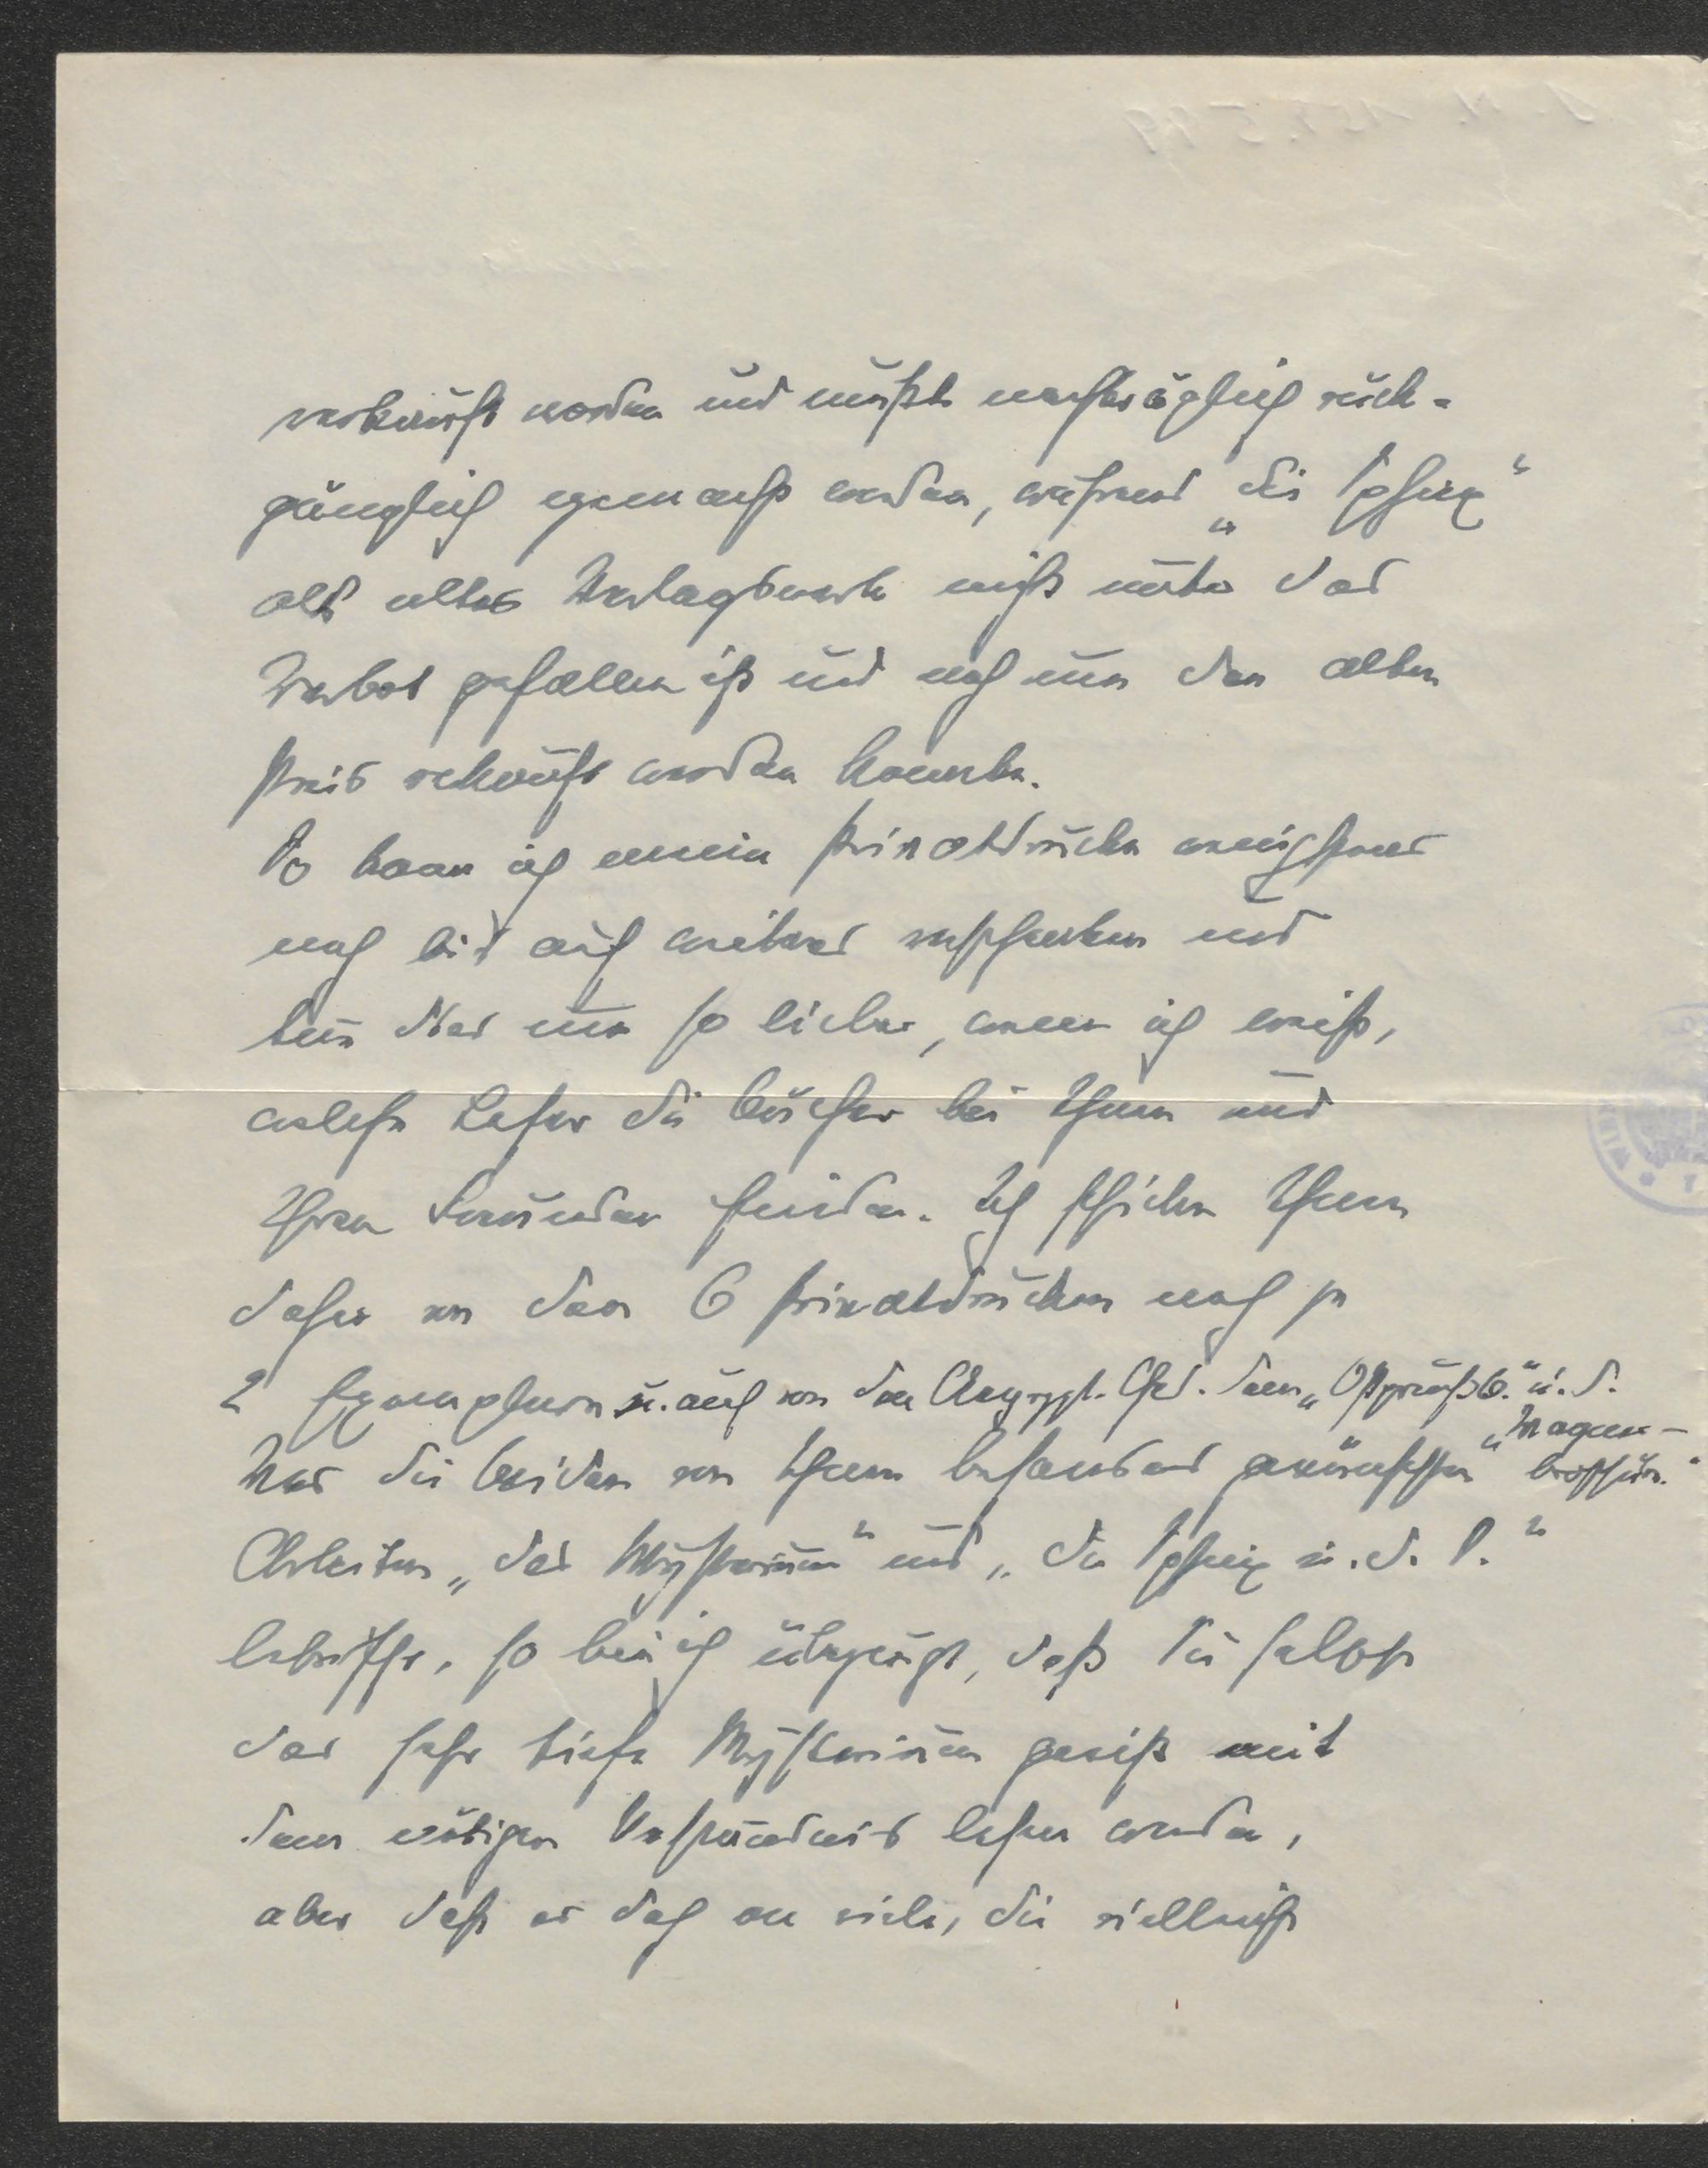 verkauft worden und mußte nachträglich rück-
gänglich gemacht werden, während „die Sphinx“
als altes Verlagswerk nicht unter das
Verbot gefallen ist und noch um den alten
Preis verkauft werden konnte.
So kann ich meine Privatdrucke wenigstens
noch bis auf weiteres verschenken und
tue dies um so lieber, wenn ich weiß,
welche Leser die Bücher bei Ihnen und
Ihren Freunden finden. Ich schicke Ihnen
daher von den 6 Privatdrucken noch je
2 Exemplare u. auch von den Aegypt. dem „Ostpreuß.“ u. d.
„Wagner-
Was die beiden von Ihnen besonders gewünschten broschüre.“
Arbeiten „das Mysterium“ und „die Sphinx u. d. S.“
betrifft, so bin ich überzeugt, daß Sie selbst
das sehr tiefe Mysterium gewiß mit
dem nötigen Verständnis lesen werden,
aber daß es doch an viele, die vielleicht